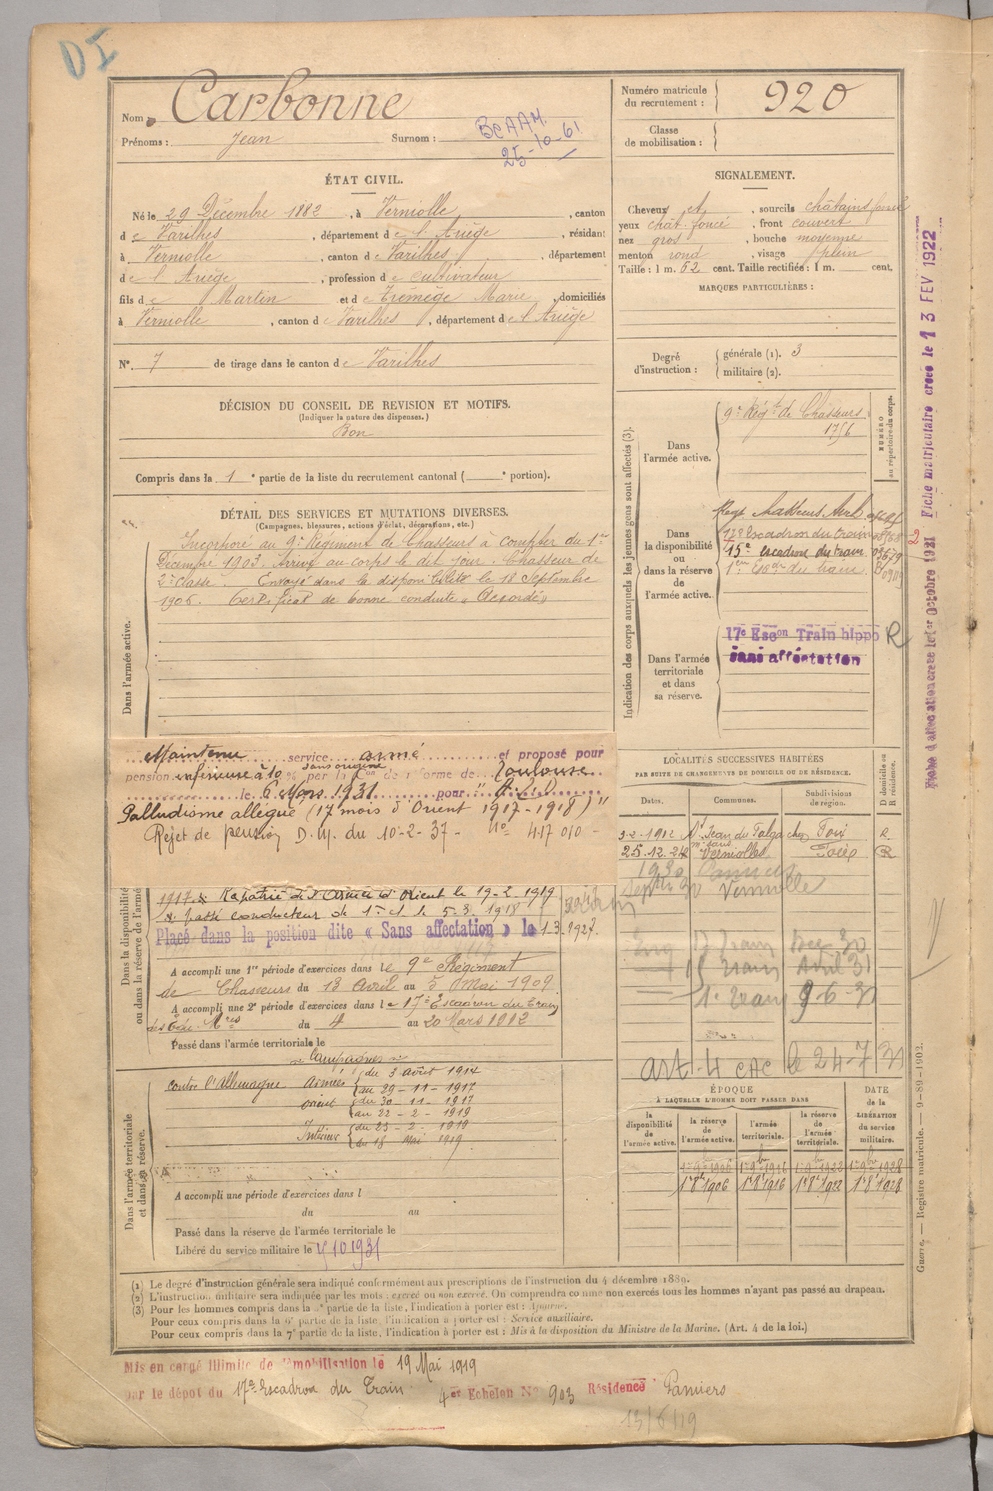 DI
Nom Carbonne
Prénoms : Jean Surnom :
BCAAM.
25-10-61
Numéro matricule du recrutement : 920
Classe de mobilisation :
ÉTAT CIVIL.
Né le 29 Décembre 1882, à Verniolle, canton
de Varilhes, département de l'Ariège, résidant
à Verniolle, canton de Varilhes, département
de l'Ariège, profession de cultivateur
fils de Martin et de Trémège Marie, domiciliés
à Verniolle, canton de Varilhes, département de l'Ariège
N° 7 de tirage dans le canton de Varilhes
SIGNALEMENT.
Cheveux et, sourcils châtains foncé
yeux chât. foncé, front couvert
nez gros, bouche moyenne
menton rond, visage plein
Taille : 1 m. 62 cent. Taille rectifiée : 1 m. cent.
MARQUES PARTICULIÈRES :
Degré d'instruction : générale (1). 3
militaire (2).
DÉCISION DU CONSEIL DE REVISION ET MOTIFS.
(Indiquer la nature des dispenses.)
Bon
Compris dans la 1e partie de la liste du recrutement cantonal ( e portion).
DÉTAIL DES SERVICES ET MUTATIONS DIVERSES.
(Campagnes, blessures, actions d'éclat, décorations, etc.)
Dans l'armée active.
Incorporé au 9e Régiment de Chasseurs à compter du 1er
Décembre 1903. Arrivé au corps le dit jour. Chasseur de
2e Classe. Envoyé dans le disponibilité le 18 Septembre
1906. Certificat de bonne conduite « Accordé »
Indication des corps auxquels les jeunes gens sont affectés (3).
NUMÉRO au répertoire du corps.
Dans l'armée active.
9e Régt de Chasseurs
1756
Dans la disponibilité ou dans la réserve de l'armée active.
17e Escadron du train
15e escadron du train
Dans l'armée territoriale et dans sa réserve.
17e Escon Train hippo R
sans affectation
Fiche d'affectation créée le 1er Octobre 1921 Fiche matriculaire créée le 13 FEV 1922
Maintenu service armé et proposé pour
pension inférieure à 10 % sans origine par la Con de réforme de Toulouse
le 6 Mars 1931 pour "
Palludisme allégué (17 mois d'Orient 1917-1918)"
Rejet de pension D.M. du 10-2-37 - N° 417 010 -
Dans la disponibilité ou dans la réserve de l'armée
1917. Rapatrié de l'Armée d'Orient le 19-2-1919
passé conducteur de 1e cl le 5-3-1918
Placé dans la position dite « Sans affectation » le 1-3-1927.
A accompli une 1re période d'exercices dans le 9e Régiment
de Chasseurs du 13 Avril au 5 Mai 1909
A accompli une 2e période d'exercices dans le 17e Escadron du Train
des Éq. Mres du 4 au 20 Mars 1912
Passé dans l'armée territoriale le
Dans l'armée territoriale et dans sa réserve.
Campagnes
contre l'Allemagne Armées du 3 Août 1914
au 29-11-1917
Orient du 30-11-1917
au 22-2-1919
Intérieur du 23-2-1919
au 18 Mai 1919
A accompli une période d'exercices dans l
du au
Passé dans la réserve de l'armée territoriale le
Libéré du service militaire le 10 1931
LOCALITÉS SUCCESSIVES HABITÉES
PAR SUITE DE CHANGEMENTS DE DOMICILE OU DE RÉSIDENCE.
Dates. Communes. Subdivisions de région. D domicile ou R résidence.
3-2-1912 St Jean du Falga Foix R
25.12.24 Verniolles Foix R
1930
Septbre 30 Verniolle
Train Dec 30
Train Avril 31
Train 9-6-31
art 4 CAC le 24-7 31
ÉPOQUE
À LAQUELLE L'HOMME DOIT PASSER DANS
DATE de la LIBÉRATION du service militaire.
la disponibilité de l'armée active.
la réserve de l'armée active.
l'armée territoriale.
la réserve de l'armée territoriale.
1r 9bre 1906 1r 9bre 1916 1r 9bre 1922 1r 9bre 1928
1r 8bre 1906 1r 8bre 1916 1r 8bre 1922 1r 8bre 1928
Guerre. — Registre matricule. — 9-89-1902.
(1) Le degré d'instruction générale sera indiqué conformément aux prescriptions de l'instruction du 4 décembre 1889.
(2) L'instruction militaire sera indiquée par les mots : exercé ou non exercé. On comprendra comme non exercés tous les hommes n'ayant pas passé au drapeau.
(3) Pour les hommes compris dans la partie de la liste, l'indication à porter est : Ajourné.
Pour ceux compris dans la 6e partie de la liste, l'indication à porter est : Service auxiliaire.
Pour ceux compris dans la 7e partie de la liste, l'indication à porter est : Mis à la disposition du Ministre de la Marine. (Art. 4 de la loi.)
Mis en congé illimité de démobilisation le 19 Mai 1919
par le dépôt du 17e Escadron du Train 4e Echelon N° 903 Résidence Pamiers
13/6/19